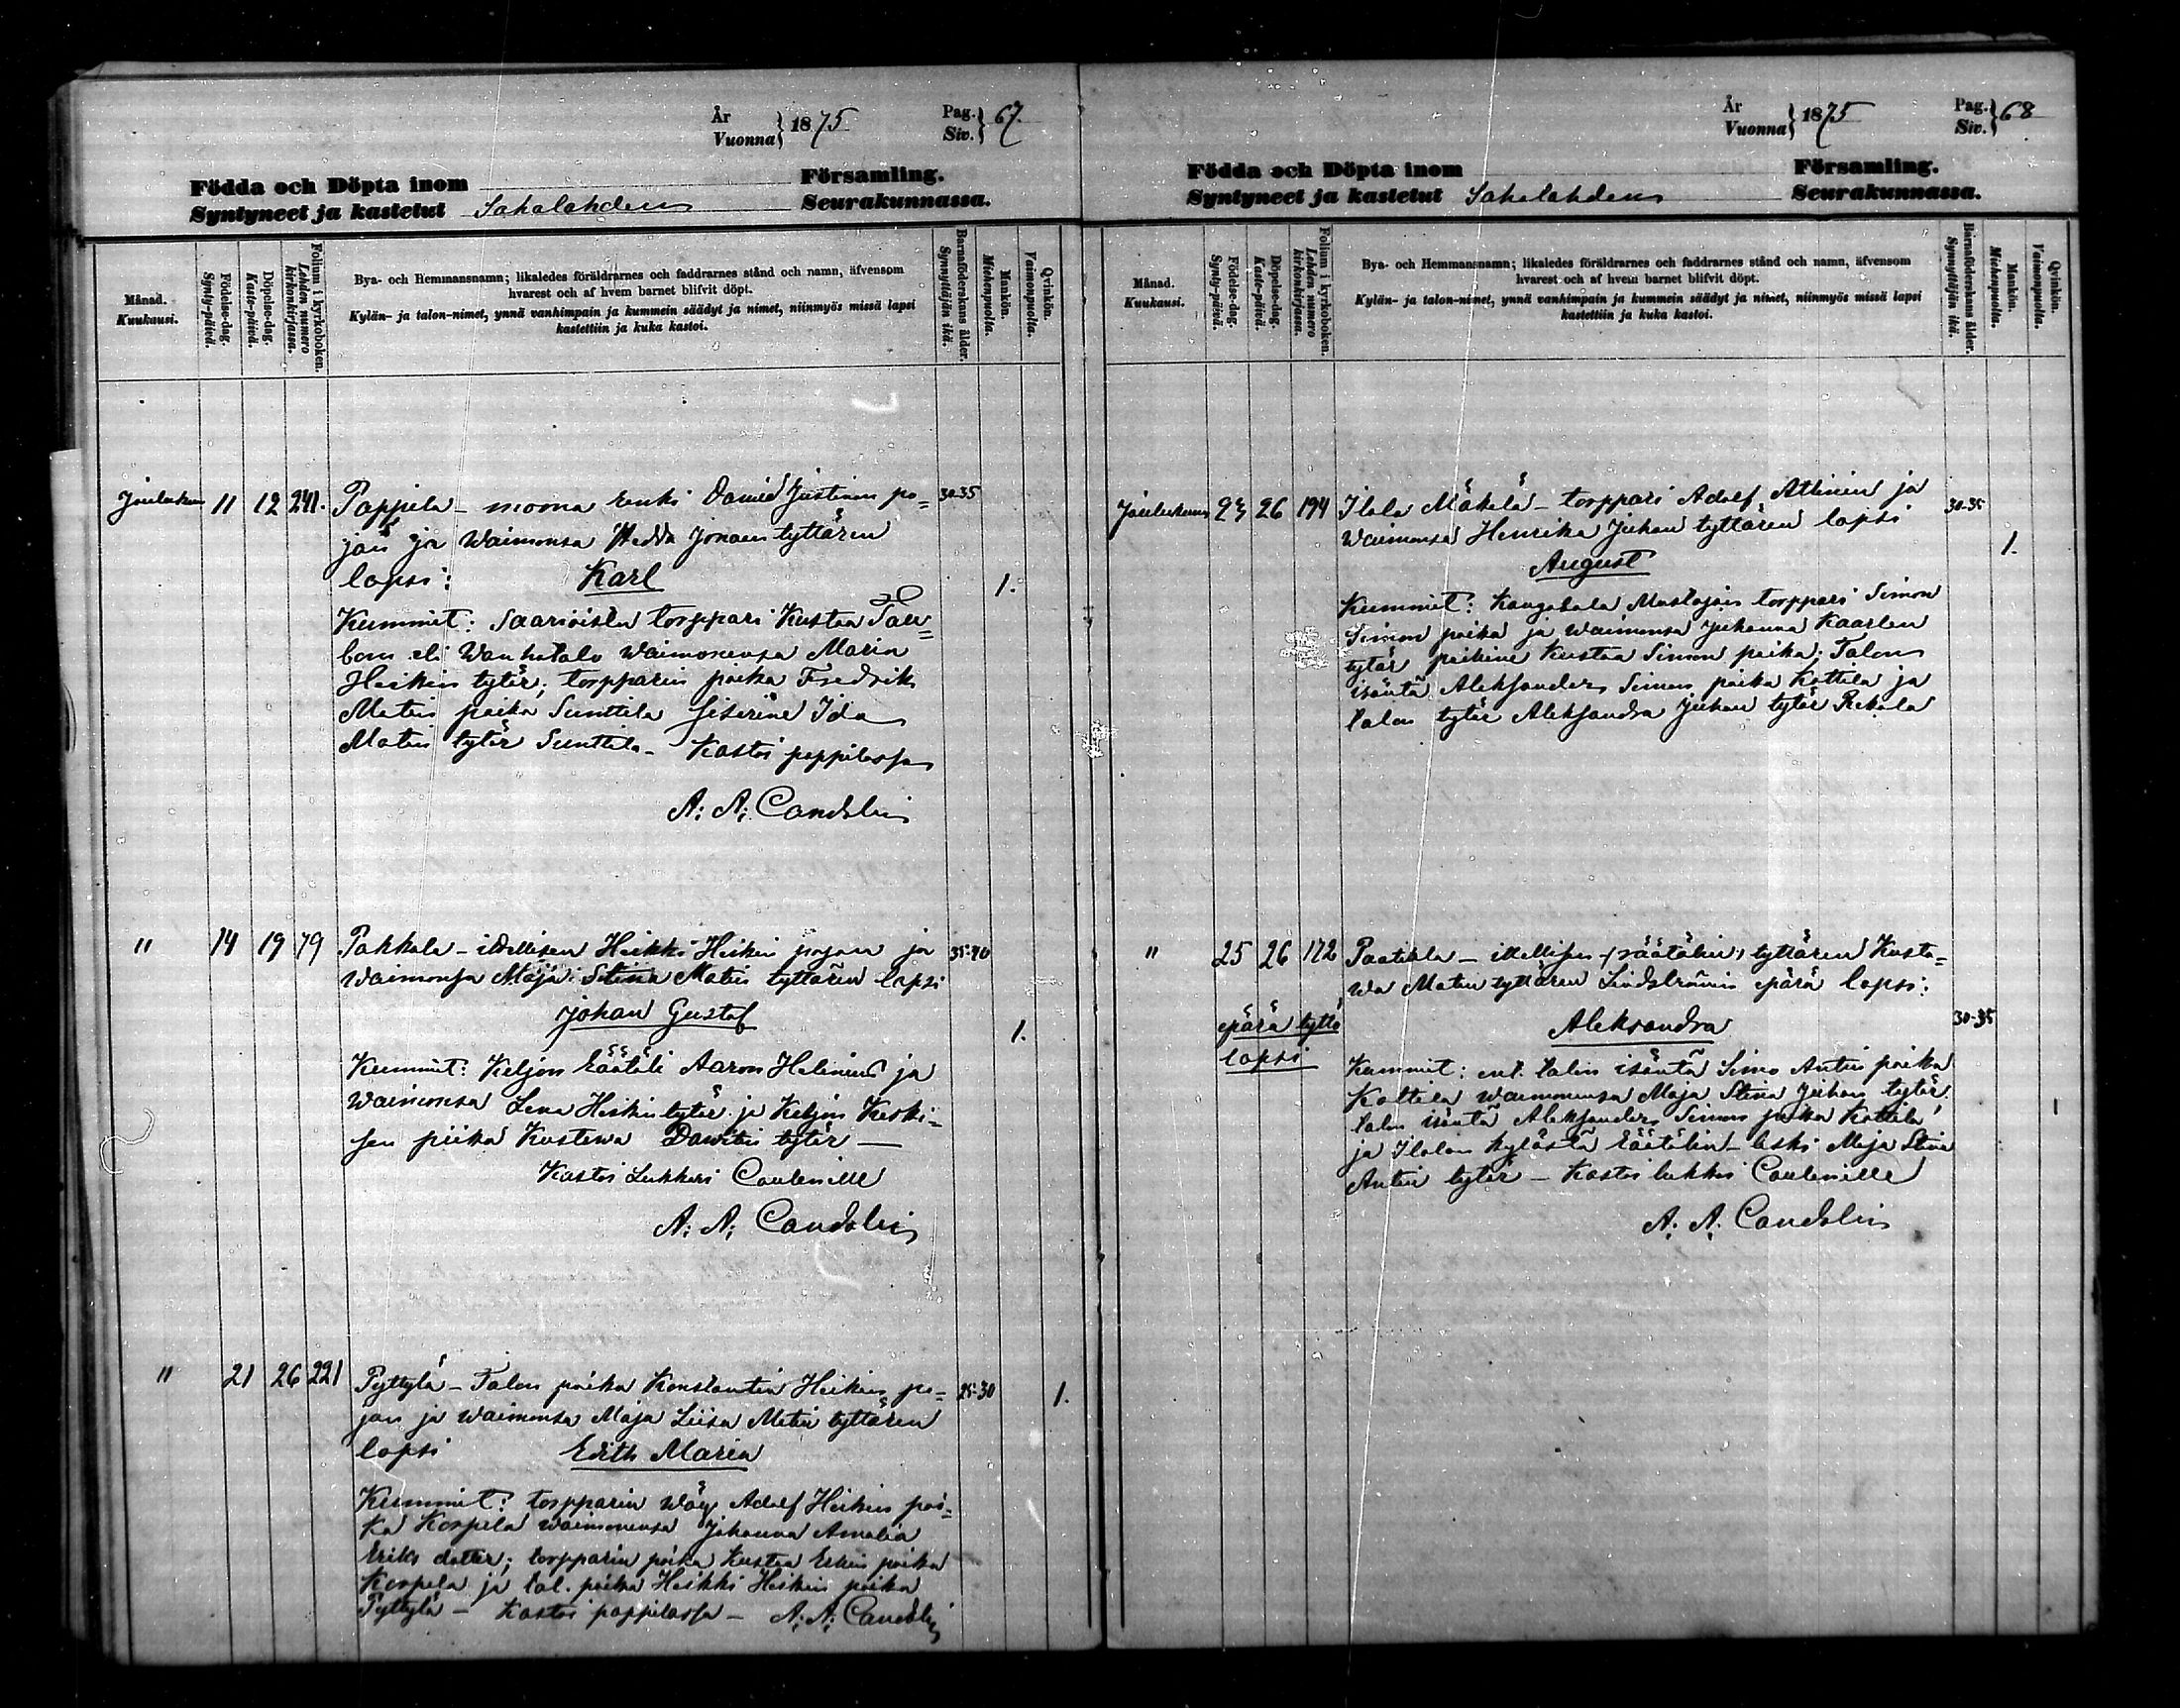 År
Vuonna } 1875
Pag.
Siv. } 67
Födda och Döpta inom Församling.
Syntyneet ja kastetut Sahalahden Seurakunnassa.
Månad.
Kuukausi.
Födelse-dag.
Synty-päivä.
Döpelse-dag.
Kaste-päivä.
Folium i kyrkoboken.
Lehden numero
kirkonkirjassa.
Bya- och Hemmansnamn; likaledes föräldrarnes och faddrarnes stånd och namn, äfvensom
hvarest och af hvem barnet blifvit döpt.
Kylän- ja talon-nimet, ynnä vanhimpain ja kummein säädyt ja nimet, niinmyös missä lapsi
kastettiin ja kuka kastoi.
Barnaföderskans ålder.
Synnyttäjän ikä.
Mankön.
Miehenpuolia.
Qvinkön.
Vaimonpuolia.
Joulukuu 11 12 241. Pappila - muona renki David Justinen po= 30-35
jan ja Waimonsa Hedda Jonaen tyttären
lapsi: Karl 1.
Kummit: Saarioista torppari Kustaa
Wanhatalo waimonensa Maria
Heikin tytär; torpparin poika Fredrik
Matin poika Sunttila Ida
Matin tytär Sunttila - Kastoi pappilassa
A: A: Candolin
" 14 19 79 Pakkala - itellisen Heikki Heikin pojan ja 35-40
Waimonsa Maja Stina Matin tyttären lapsi
Johan Gustaf 1.
Kummit: Keljon Räätäli Aaron Helenius ja
Waimonsa Lena Heikin tytär ja Keljon Keski=
sen piika Kustawa Dawitin tytär -
Kastoi Lukkari Caulenille
A: A: Candolin
" 21 26 221 Pyttylä - Talon poika Konstantin Heikin po= 25-30 1.
jan ja waimonsa Maja Liisa Matin tyttären
lapsi Edith Maria
Kummit: torpparin wäy Adolf Heikin poi=
ka Korpela waimonensa Johanna Amalia
Eriks dotter; torpparin poika Kustaa Erkin poika
Korpela ja tal. poika Heikki Heikin poika
Pyttylä - Kastoi pappilassa - A: A: Candolin
År
Vuonna } 1875
Pag.
Siv. } 68
Födda och Döpta inom Församling.
Syntyneet ja kastetut Sahalahden Seurakunnassa.
Månad.
Kuukausi.
Födelse-dag.
Synty-päivä.
Döpelse-dag.
Kaste-päivä.
Folium i kyrkoboken.
Lehden numero
kirkonkirjassa.
Bya- och Hemmansnamn; likaledes föräldrarnes och faddrarnes stånd och namn, äfvensom
hvarest och af hvem barnet blifvit döpt.
Kylän- ja talon-nimet, ynnä vanhimpain ja kummein säädyt ja nimet, niinmyös missä lapsi
kastettiin ja kuka kastoi.
Barnaföderskans ålder.
Synnyttäjän ikä.
Mankön.
Miehenpuolia.
Qvinkön.
Vaimonpuolia.
Joulukuun 23 26 194 Ilola Mäkelä - torppari Adolf Atlinin ja 30-35
Waimonsa Henrika Juhan tyttären lapsi 1.
August
Kummit: Kangasala Mustajärv torppari Simon
Simon poika ja waimonsa Johanna Kaarlen
tytär poikine Kustaa Simon poika; Talon
isäntä Aleksander Simon poika Kottila ja
talon tytär Aleksandra Juhan tytär Rekola
" 25 26 172 Paatikla - itellisen räätälin tyttären Kusta=
wa Matin tyttären Lindströmin epärä lapsi:
epärä tyttö Aleksandra 30-35
lapsi
Kummit: ent. talon isäntä Simo Antin poika
Kottila waimonensa Maja Stina Juhan tytär
talon isäntä Aleksander Simon poika Kottila, 1
ja Ilolan kylästä Räätälin leski Maja Stina
Antin tytär - Kastoi lukkari Caulenille
A: A: Candolin